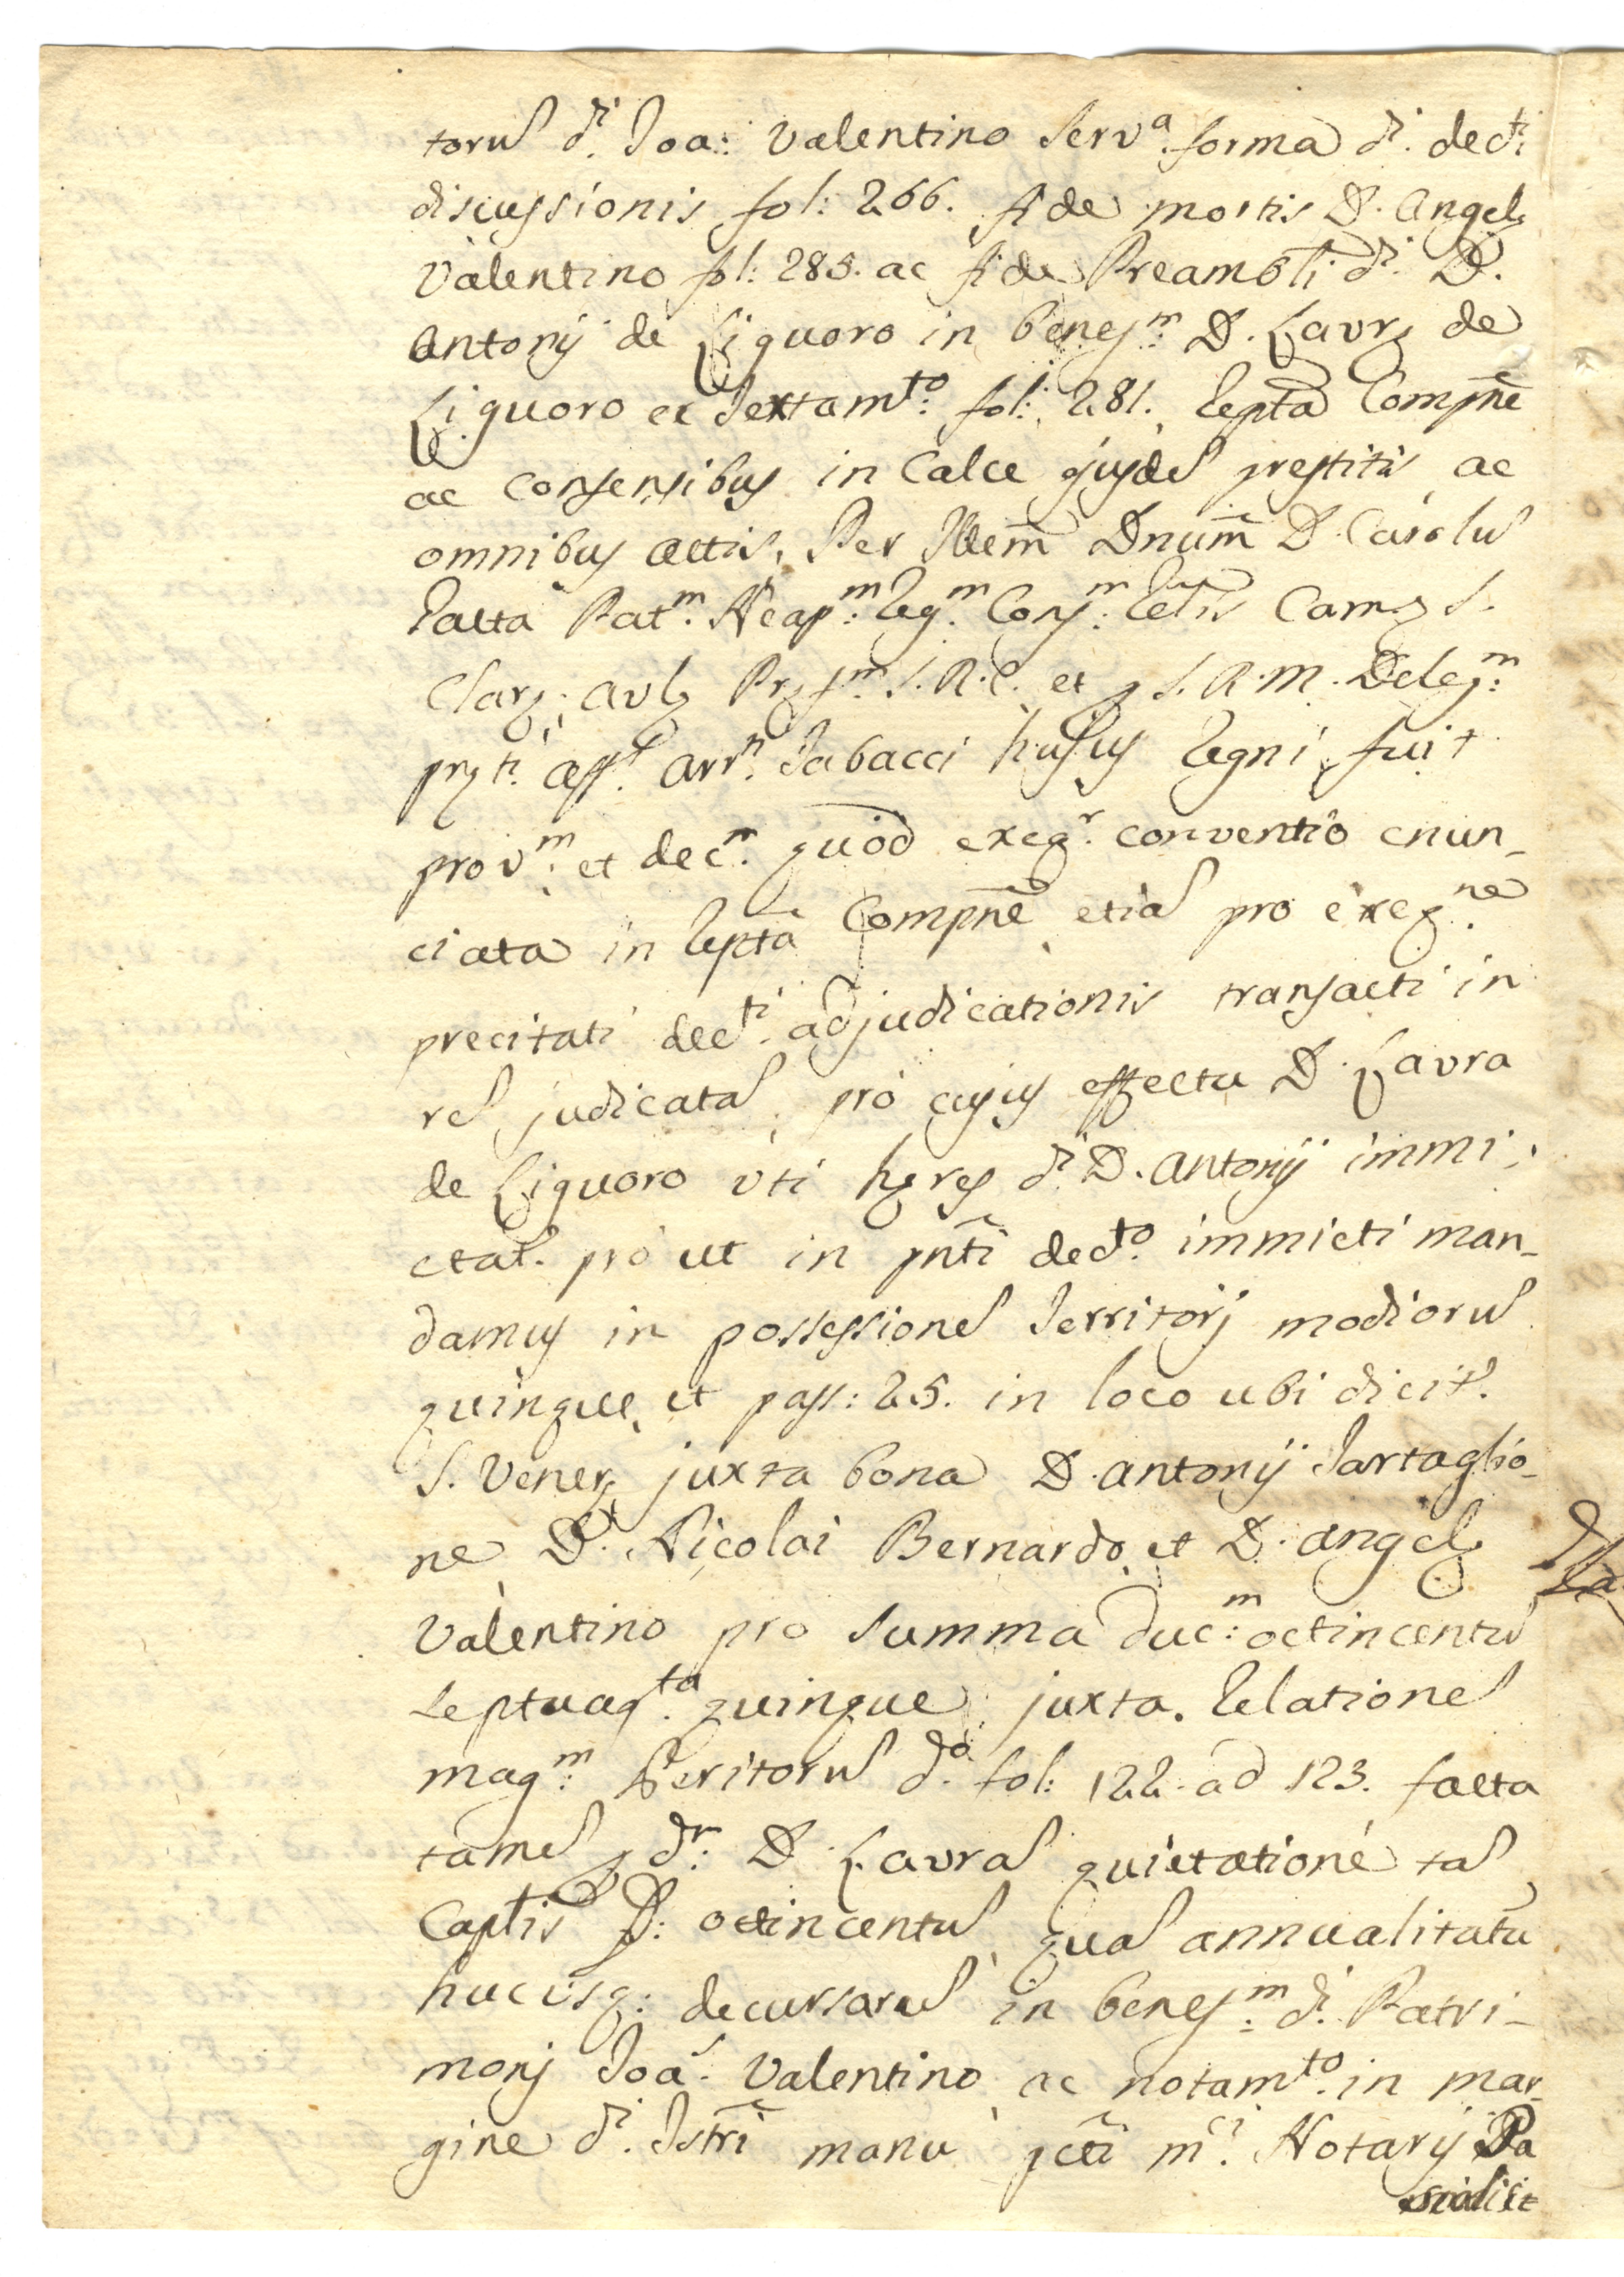 torũ d.ⁱ Joa: Valentino Serv.ª forma d.ⁱ dec.ti
discussionis fol: 266. fide mortis D. Angelę
Valentino fol: 285. ac fide Preambli d.ⁱ D.
Antonij de Liguoro in benef.m D. Laurę de
Liguoro ex Testam.to fol: 281. Reptã Compnẽ
ac consensibus in calce ejusdẽ prestitis, ac
omnibus actis, Per Illem̃ Dnum̃ D. Carolũ
Pat.m Neap.m Reg.m Cons.m Camę S.
Clarę, aulę Pręf.m S.R.C. et p S.R.M. Deleg.m
pręti. aff.t Arr.ti Tabacci hujus Regni, fuit
prov.m et dec.m quod exeq.r conventio enun-
ciata in Reptã Compnẽ, etiã pro exeq.ne
precitati dec.ti adjudicationis transacti in
rẽ judicatã, pro cujus effectu D. Laura
de Liguoro uti hęres d.ⁱ D. Antonij immi-
ctat.r pro ut in pnti dec.to immicti man-
damus in possessionẽ Territorij modiorũ
quinque, et pass: 25. in loco ubi dicit.r
S. Venerę juxta bona D. Antonij Tartaglio-
ne, D. Nicolai Bernardo, et D. Angelę
Valentino pro summa duc.m octincentũ
septuag.ta quinque, juxta Relationẽ
mag.m Peritorũ d.º fol: 122. ad 123. facta
tamẽ p d.m D. Laurã quietationẽ tã
Captis D: octincentũ, quã annualitatũ
hucusq: decursarũ in benef.m d.ⁱ Patri-
monij Joã. Valentino, ac notam.to in mar-
gine d.ⁱ Istri manu pcti m.ci Notarij Pa
scalis